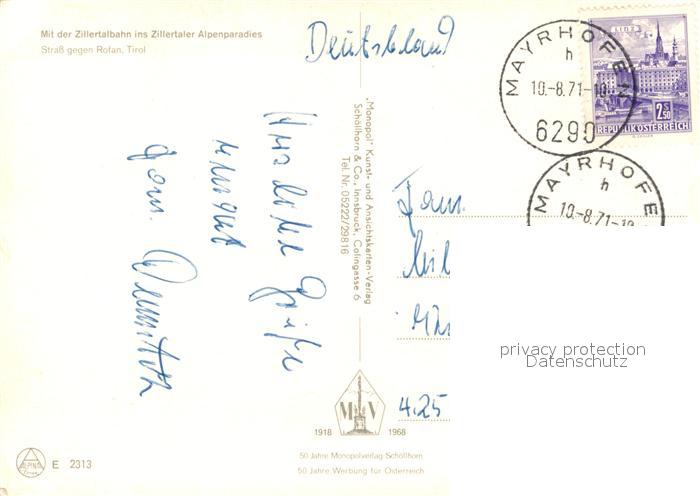 Mit der Zillertalbahn ins Zillertaler Alpenparadies
Straß gegen Rofan, Tirol
Deutschland
MAYRHOFEN
h
10.-8.71-10
6290
LINZ
2S50
REPUBLIK ÖSTERREICH
MAYRHOFE
h
10.-8.71-10
„Monopol" Kunst- und Ansichtskarten-Verlag
Schöllhorn & Co., Innsbruck, Colingasse 6
Tel. Nr. 05222/29816
Herzliche Grüße
Fam.
Fam.
425
M V
1918 1968
50 Jahre Monopolverlag Schöllhorn
50 Jahre Werbung für Österreich
ALPINA
E 2313
privacy protection
Datenschutz